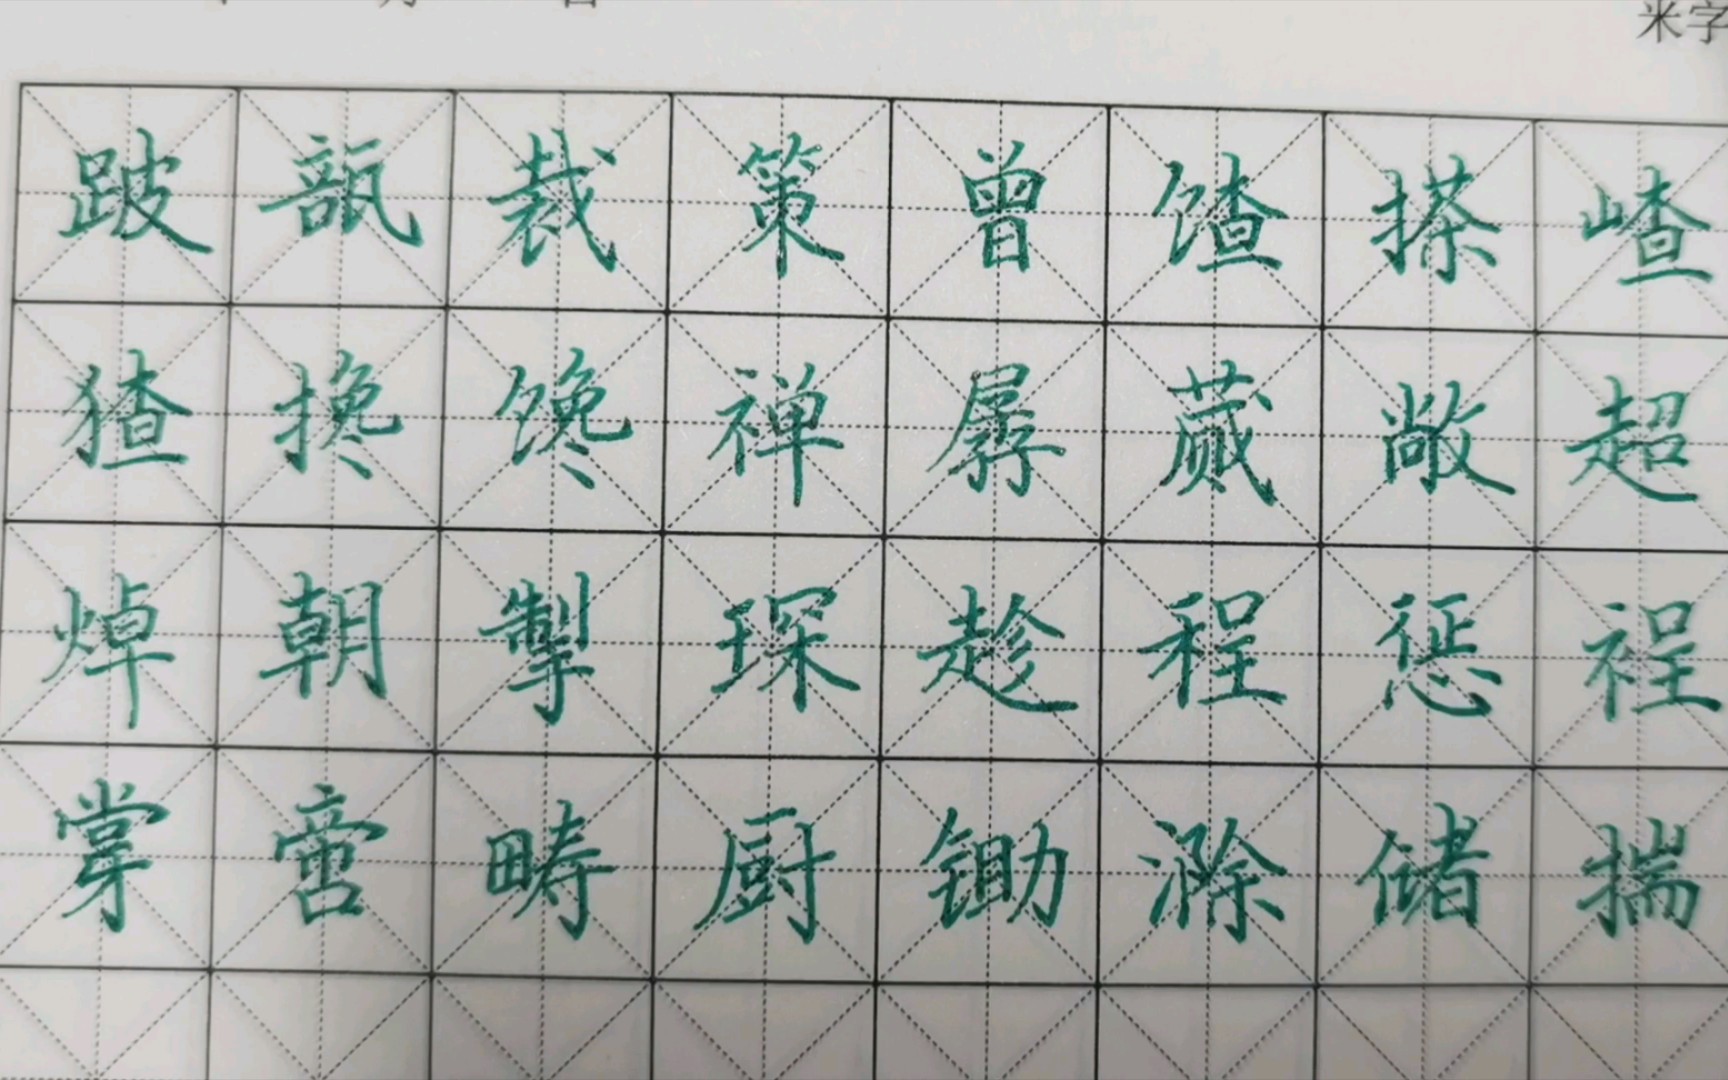 米字
跛瓿裁策曾馇搽嵖
猹搀馋禅孱蒇敞超
焯朝掣琛趁程惩裎
牚啻畴厨锄滁储揣